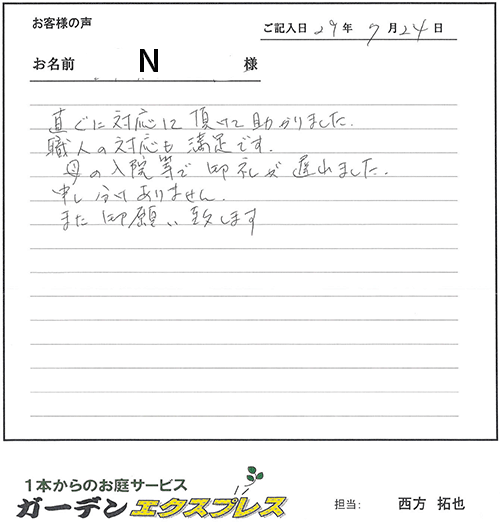 お客様の声
ご記入日 29年 7月24日
お名前 N 様
直ぐに対応して頂けて助かりました.
職人の対応も満足です.
母の入院等で御礼が遅れました.
申し分けありません.
また御願い致します
1本からのお庭サービス
ガーデンエクスプレス
担当: 西方 拓也